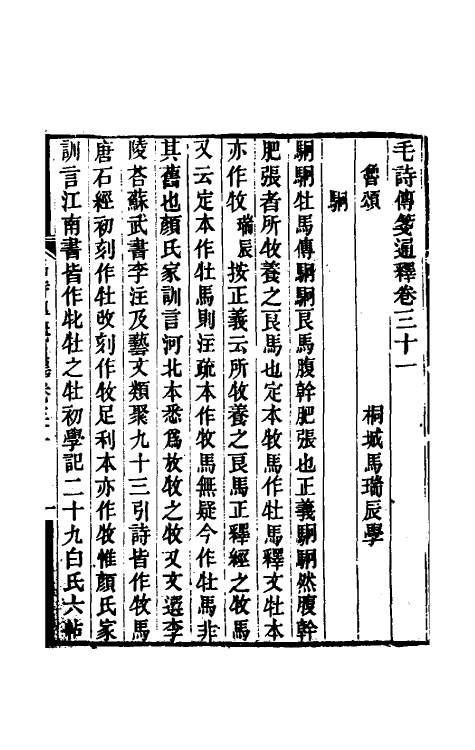 毛詩傳箋通釋卷三十一
桐城馬瑞辰學
魯頌
駉
駉駉牡馬傳駉駉良馬腹幹肥張也正義駉駉然腹幹
肥張者所牧養之良馬也定本牧馬作牡馬釋文牡本
亦作牧瑞辰按正義云所牧養之良馬正釋經之牧馬
又云定本作牡馬則注疏本作牧馬無疑今作牡馬非
其舊也顏氏家訓言河北本悉爲放牧之牧又文選李
陵荅蘇武書李注及藝文類聚九十三引詩皆作牧馬
唐石經初刻作牡改刻作牧足利本亦作牧惟顏氏家
訓言江南書皆作牝牡之牡初學記二十九白氏六帖